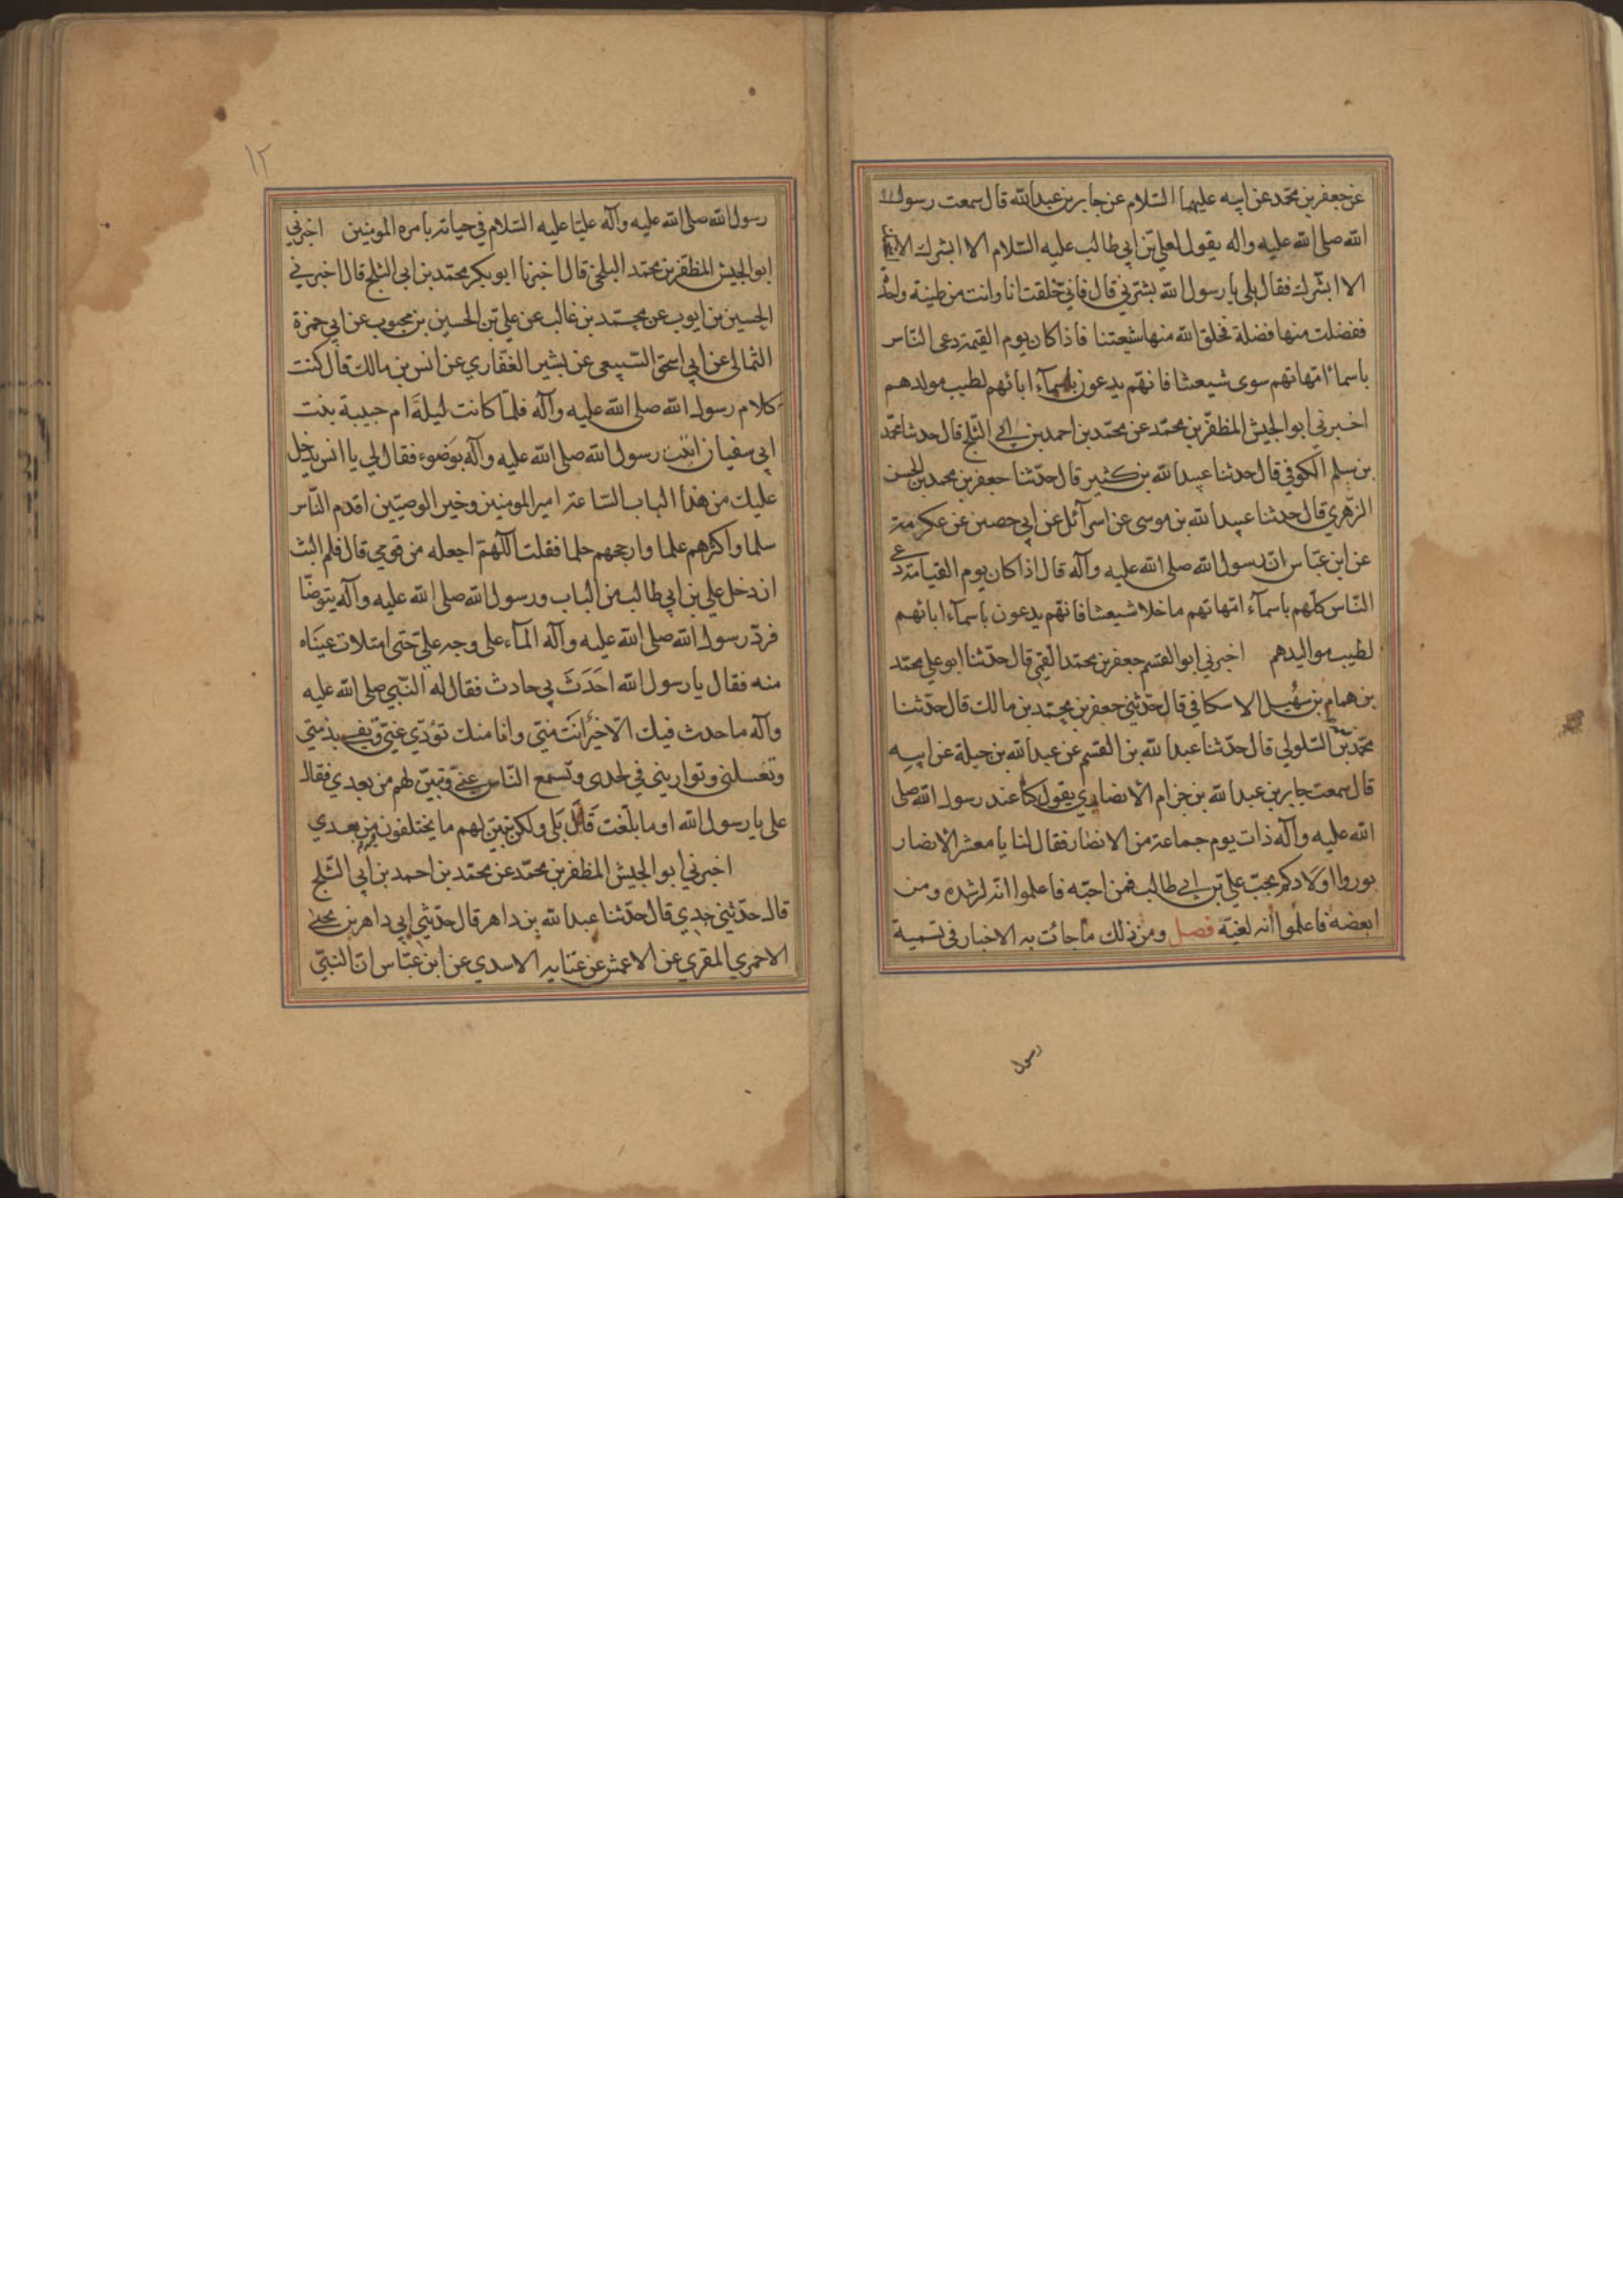 عن جعفر بن محمد عن ابيه عليهما السلام عن جابر بن عبد الله قال سمعت رسول
الله صلى الله عليه واله يقول لعلي بن ابي طالب عليه السلام الا ابشرك الا
الا ابشرك فقال بلى يا رسول الله بشرني قال فاني خلقت انا وانت من طينة واحدة
ففضلت منها فضلة فخلق الله منها شيعتنا فاذا كان يوم القيمة دعي الناس
باسماء امهاتهم سوى شيعتنا فانهم يدعون باسمآء ابائهم لطيب مولدهم
اخبرني ابو الجيش المظفر بن محمد عن محمد بن احمد بن ابي الثلج قال حدثنا محمد
بن سلم الكوفي قال حدثنا عبيد الله بن كثير قال حدّثنا جعفر بن محمد بن الحسن
الزهري قال حدثنا عبيد الله بن موسى عن اسرآئل عن ابي حصين عن عكرمة
عن ابن عبّاس انّ رسول الله صلى الله عليه وآله قال اذا كان يوم القيامة دعي
النّاس كلّهم باسمآء امّهاتهم ما خلا شيعتنا فانهم يدعون باسمآء ابائهم
لطيب مواليدهم اخبرني ابو القسم جعفر بن محمد القمي قال حدّثنا ابو علي محمد
بن همام بن سُهيل الاسكافي قال حدّثني جعفر بن محمد بن مالك قال حدّثنا
محمد بن السلولي قال حدّثنا عبد الله بن القسم عن عبد الله بن جبلة عن ابيه
قال سمعت جابر بن عبد الله بن حزام الانصاري يقول كنا عند رسول الله صلى
الله عليه وآله ذات يوم جماعة من الانصار فقال لنا يا معشر الانصار
بوروا اولادكم بحبّ علي بن ابي طالب فمن احبّه فاعلموا انّه لرشده ومن
ابغضه فاعلموا انه لغيّة فصل ومن ذلك ما جائت به الاخبار في تسمية
رسول
١٢
رسول الله صلى الله عليه وآله عليّا عليه السلام في حياته بامرة المومنين اخبرني
ابو الجيش المظفر بن محمد البلخي قال اخبرنا ابو بكر محمد بن ابي الثلج قال اخبرني
الحسين بن ايوب عن محمد بن غالب عن علي بن الحسين بن محبوب عن ابي حمزة
الثمالي عن ابي اسحق السّبيعي عن بشير الغفاري عن انس بن مالك قال كنت
كلام رسول الله صلى الله عليه وآله فلمّا كانت ليلة ام حبيبة بنت
ابي سفيان اتيت رسول الله صلى الله عليه وآله بوَضوء فقال لي يا انس يدخل
عليك من هذا الباب الساعة امير المومنين وخير الوصيّين اقدم النّاس
سلما واكثرهم علما وارجحهم حلما فقلت اللّهمّ اجعله من قومي قال فلم البث
ان دخل علي بن ابي طالب من الباب ورسول الله صلى الله عليه وآله يتوضّا
فردّ رسول الله صلى الله عليه وآله المآء على وجه علي حتى امتلات عيناه
منه فقال يا رسول الله احَدَثَ بي حادث فقال له النّبي صلى الله عليه
وآله ما حدث فيك الّا خير انت منّي وانا منك تؤدّي عنّي وتفي بذمتي
وتغسلني وتواريني في لحدي وتسمع النّاس عنّي وتبيّن لهم من بعدي فقال
علي يا رسول الله او ما بلّغت قال بَلى ولكن تبيّن لهم ما يختلفون من بعدي
اخبرني ابو الجيش المظفر بن محمّد عن محمّد بن احمد بن ابي الثّلج
قال حدّثني جدي قال حدّثنا عبد الله بن داهر قال حدّثني ابي داهر بن يحيى
الاحمري المقري عن الاعمش عن عباية الاسدي عن ابن عبّاس انّ النبيّ